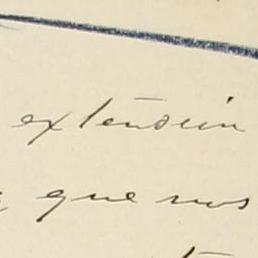 extensión
que nos